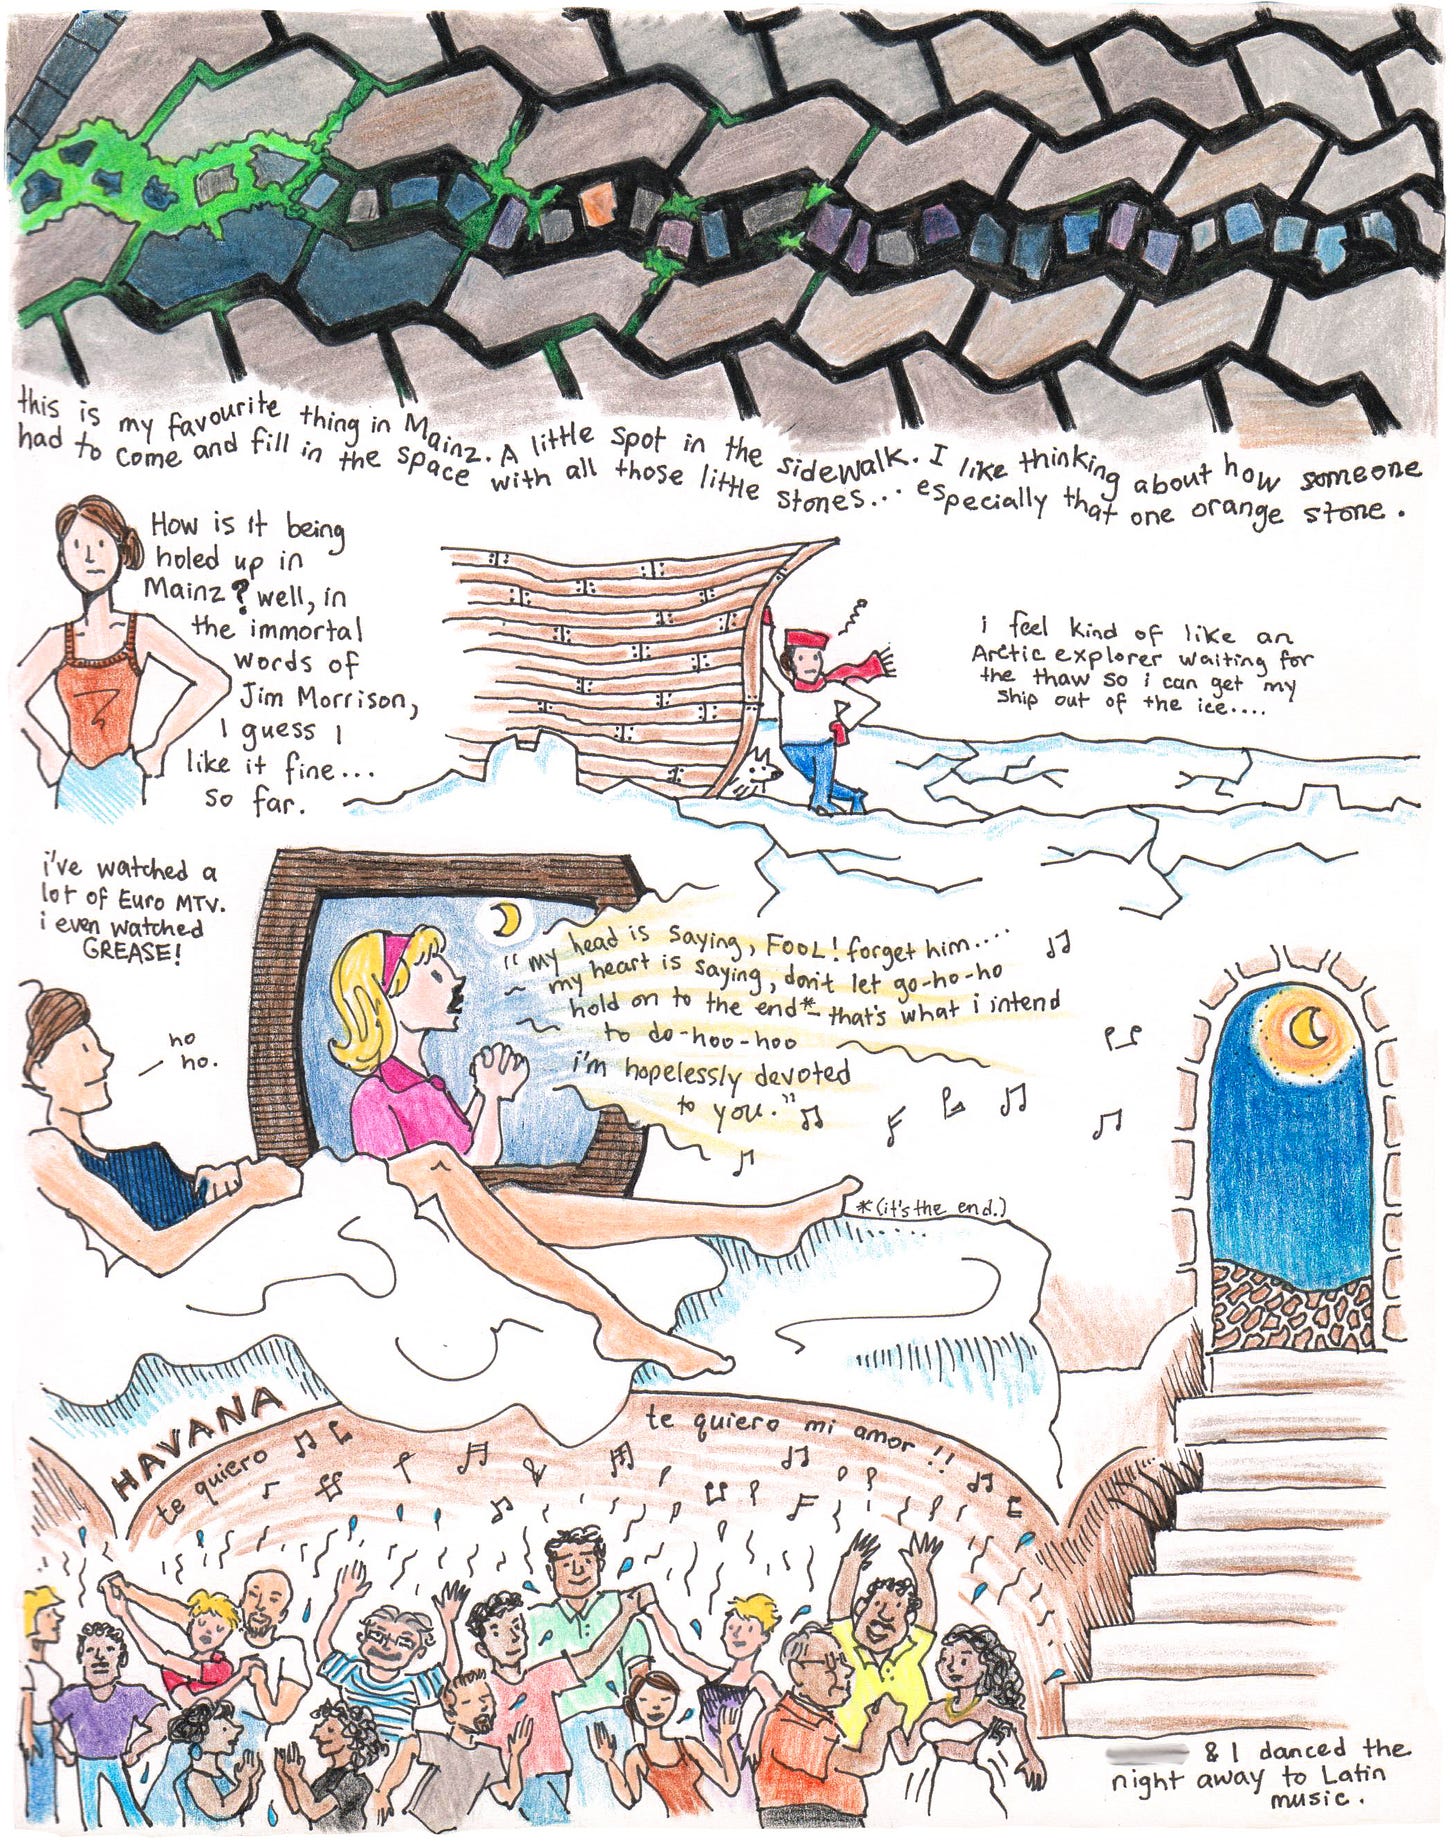 this is my favourite thing in Mainz. A little spot in the sidewalk. I like thinking about how someone
had to come and fill in the space with all those little stones... especially that one orange stone.
How is it being
holed up in
Mainz? well, in
the immortal
words of
Jim Morrison,
I guess I
like it fine...
so far.
i feel kind of like an
Arctic explorer waiting for
the thaw so i can get my
ship out of the ice....
i've watched a
lot of Euro MTV.
i even watched
GREASE!
ho
ho.
"my head is saying, FOOL! forget him....
my heart is saying, don't let go-ho-ho
hold on to the end* - that's what i intend
to do-hoo-hoo
i'm hopelessly devoted
to you."
*(it's the end.)
HAVANA
te quiero
te quiero mi amor!!
& I danced the
night away to Latin
music.